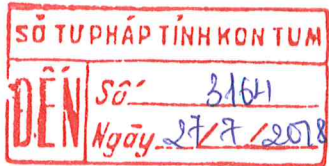 SỞ TƯ PHÁP TỈNH KON TUM
ĐẾN
Số 3164
Ngày 27/7/2018